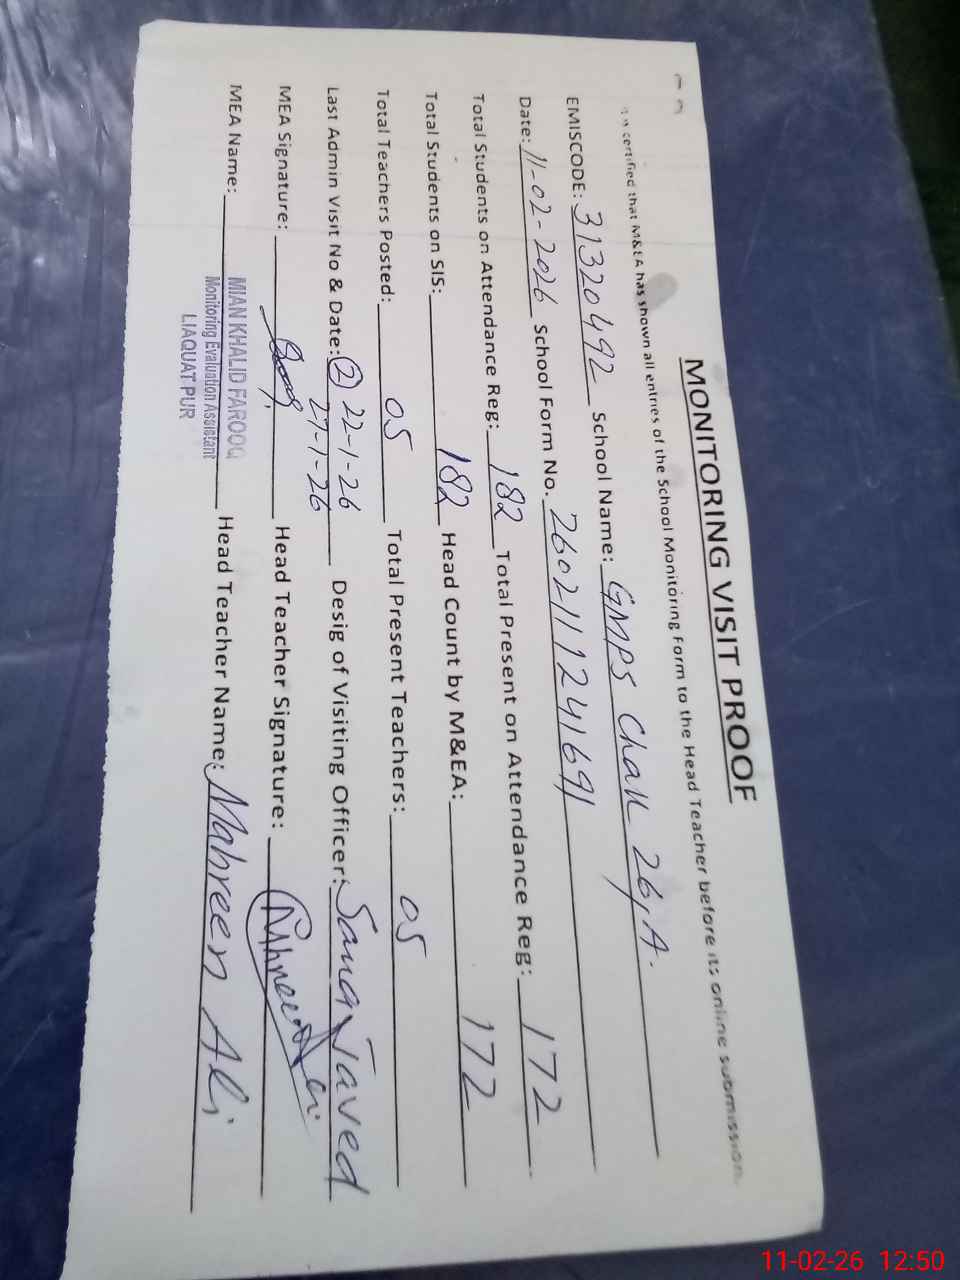 MONITORING VISIT PROOF
certified that M&EA has shown all entries of the School Monitoring Form to the Head Teacher before its online submission.
EMISCODE: 31320492 School Name: GMPS Chak 26/A.
Date: 11-02-2026 School Form No. 2602111241691
Total Students on Attendance Reg: 182 Total Present on Attendance Reg: 172
Total Students on SIS: 182 Head Count by M&EA: 172
Total Teachers Posted: 05 Total Present Teachers: 05
Last Admin Visit No & Date: (2) 22-1-26 Desig of Visiting Officer: Sana Javed
27-1-26
MEA Signature: Head Teacher Signature:
MEA Name: MIAN KHALID FAROOQ Head Teacher Name: Mahreen Ali
Monitoring Evaluation Assistant
LIAQUAT PUR
11-02-26 12:50